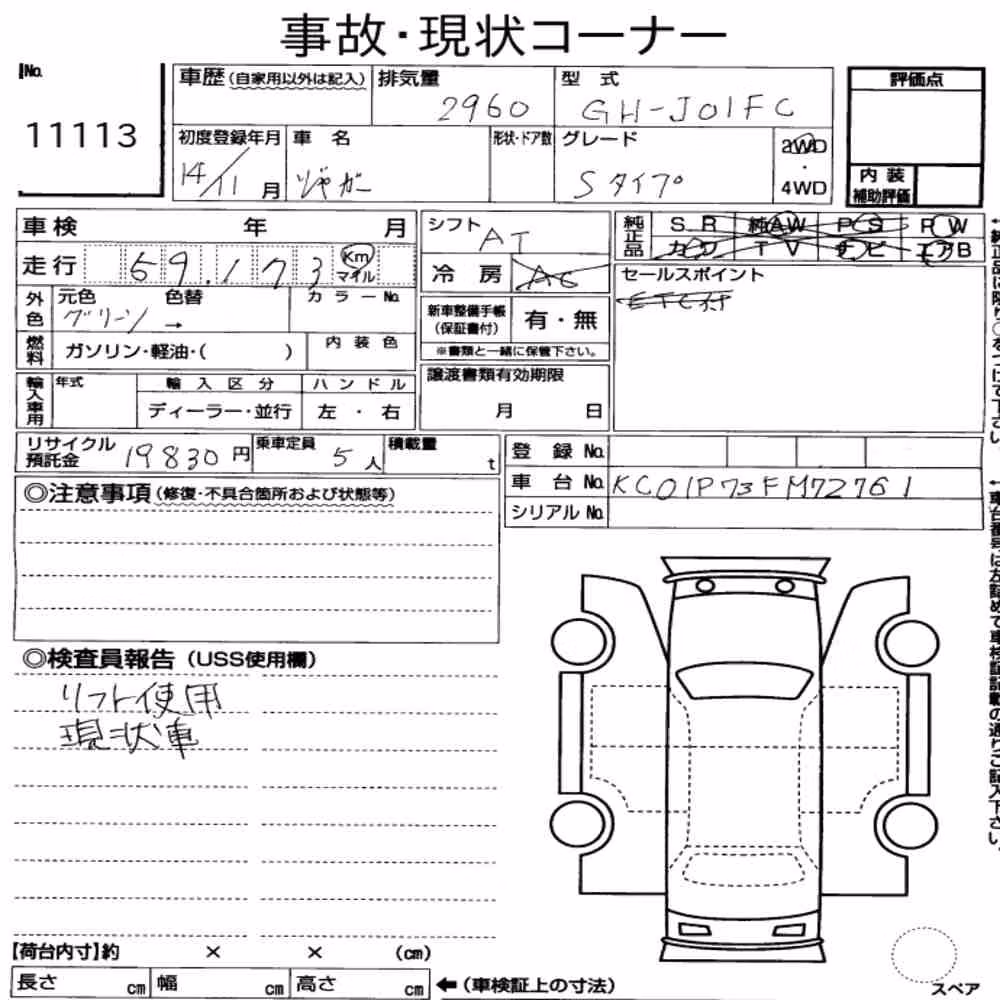 事故・現状コーナー
No.
11113
車歴(自家用以外は記入)
排気量
2960
型 式
GH-J01FC
評価点
初度登録年月
14/11 月
車 名
ジャガー
形状・ドア数
グレード
Sタイプ
2WD
・
4WD
内 装
補助評価
車検 年 月
走行 69,173 Km マイル
外色
元色 色替
グリーン →
カラーNo.
燃料
ガソリン・軽油・( )
内 装 色
輸入車用
年式
輸 入 区 分
ディーラー・並行
ハ ン ド ル
左 ・ 右
シフト AT
冷 房 AC
新車整備手帳
(保証書付)
有・無
※書類と一緒に保管下さい。
譲渡書類有効期限
月 日
純正品
S R 純AW P S P W
カワ T V ナビ エアB
セールスポイント
ETC付
←純正品に限り○をつけて下さい。
リサイクル
預託金
19830 円
乗車定員
5 人
積載量
t
登 録 No.
車 台 No. KC01P73FM72761
シリアル No.
←車台番号は左詰めで車検証記載の通りご記入下さい。
◎注意事項(修復・不具合箇所および状態等)
◎検査員報告(USS使用欄)
リフト使用
現状車
【荷台内寸】約 × × (cm)
長さ cm 幅 cm 高さ cm
←(車検証上の寸法)
スペア